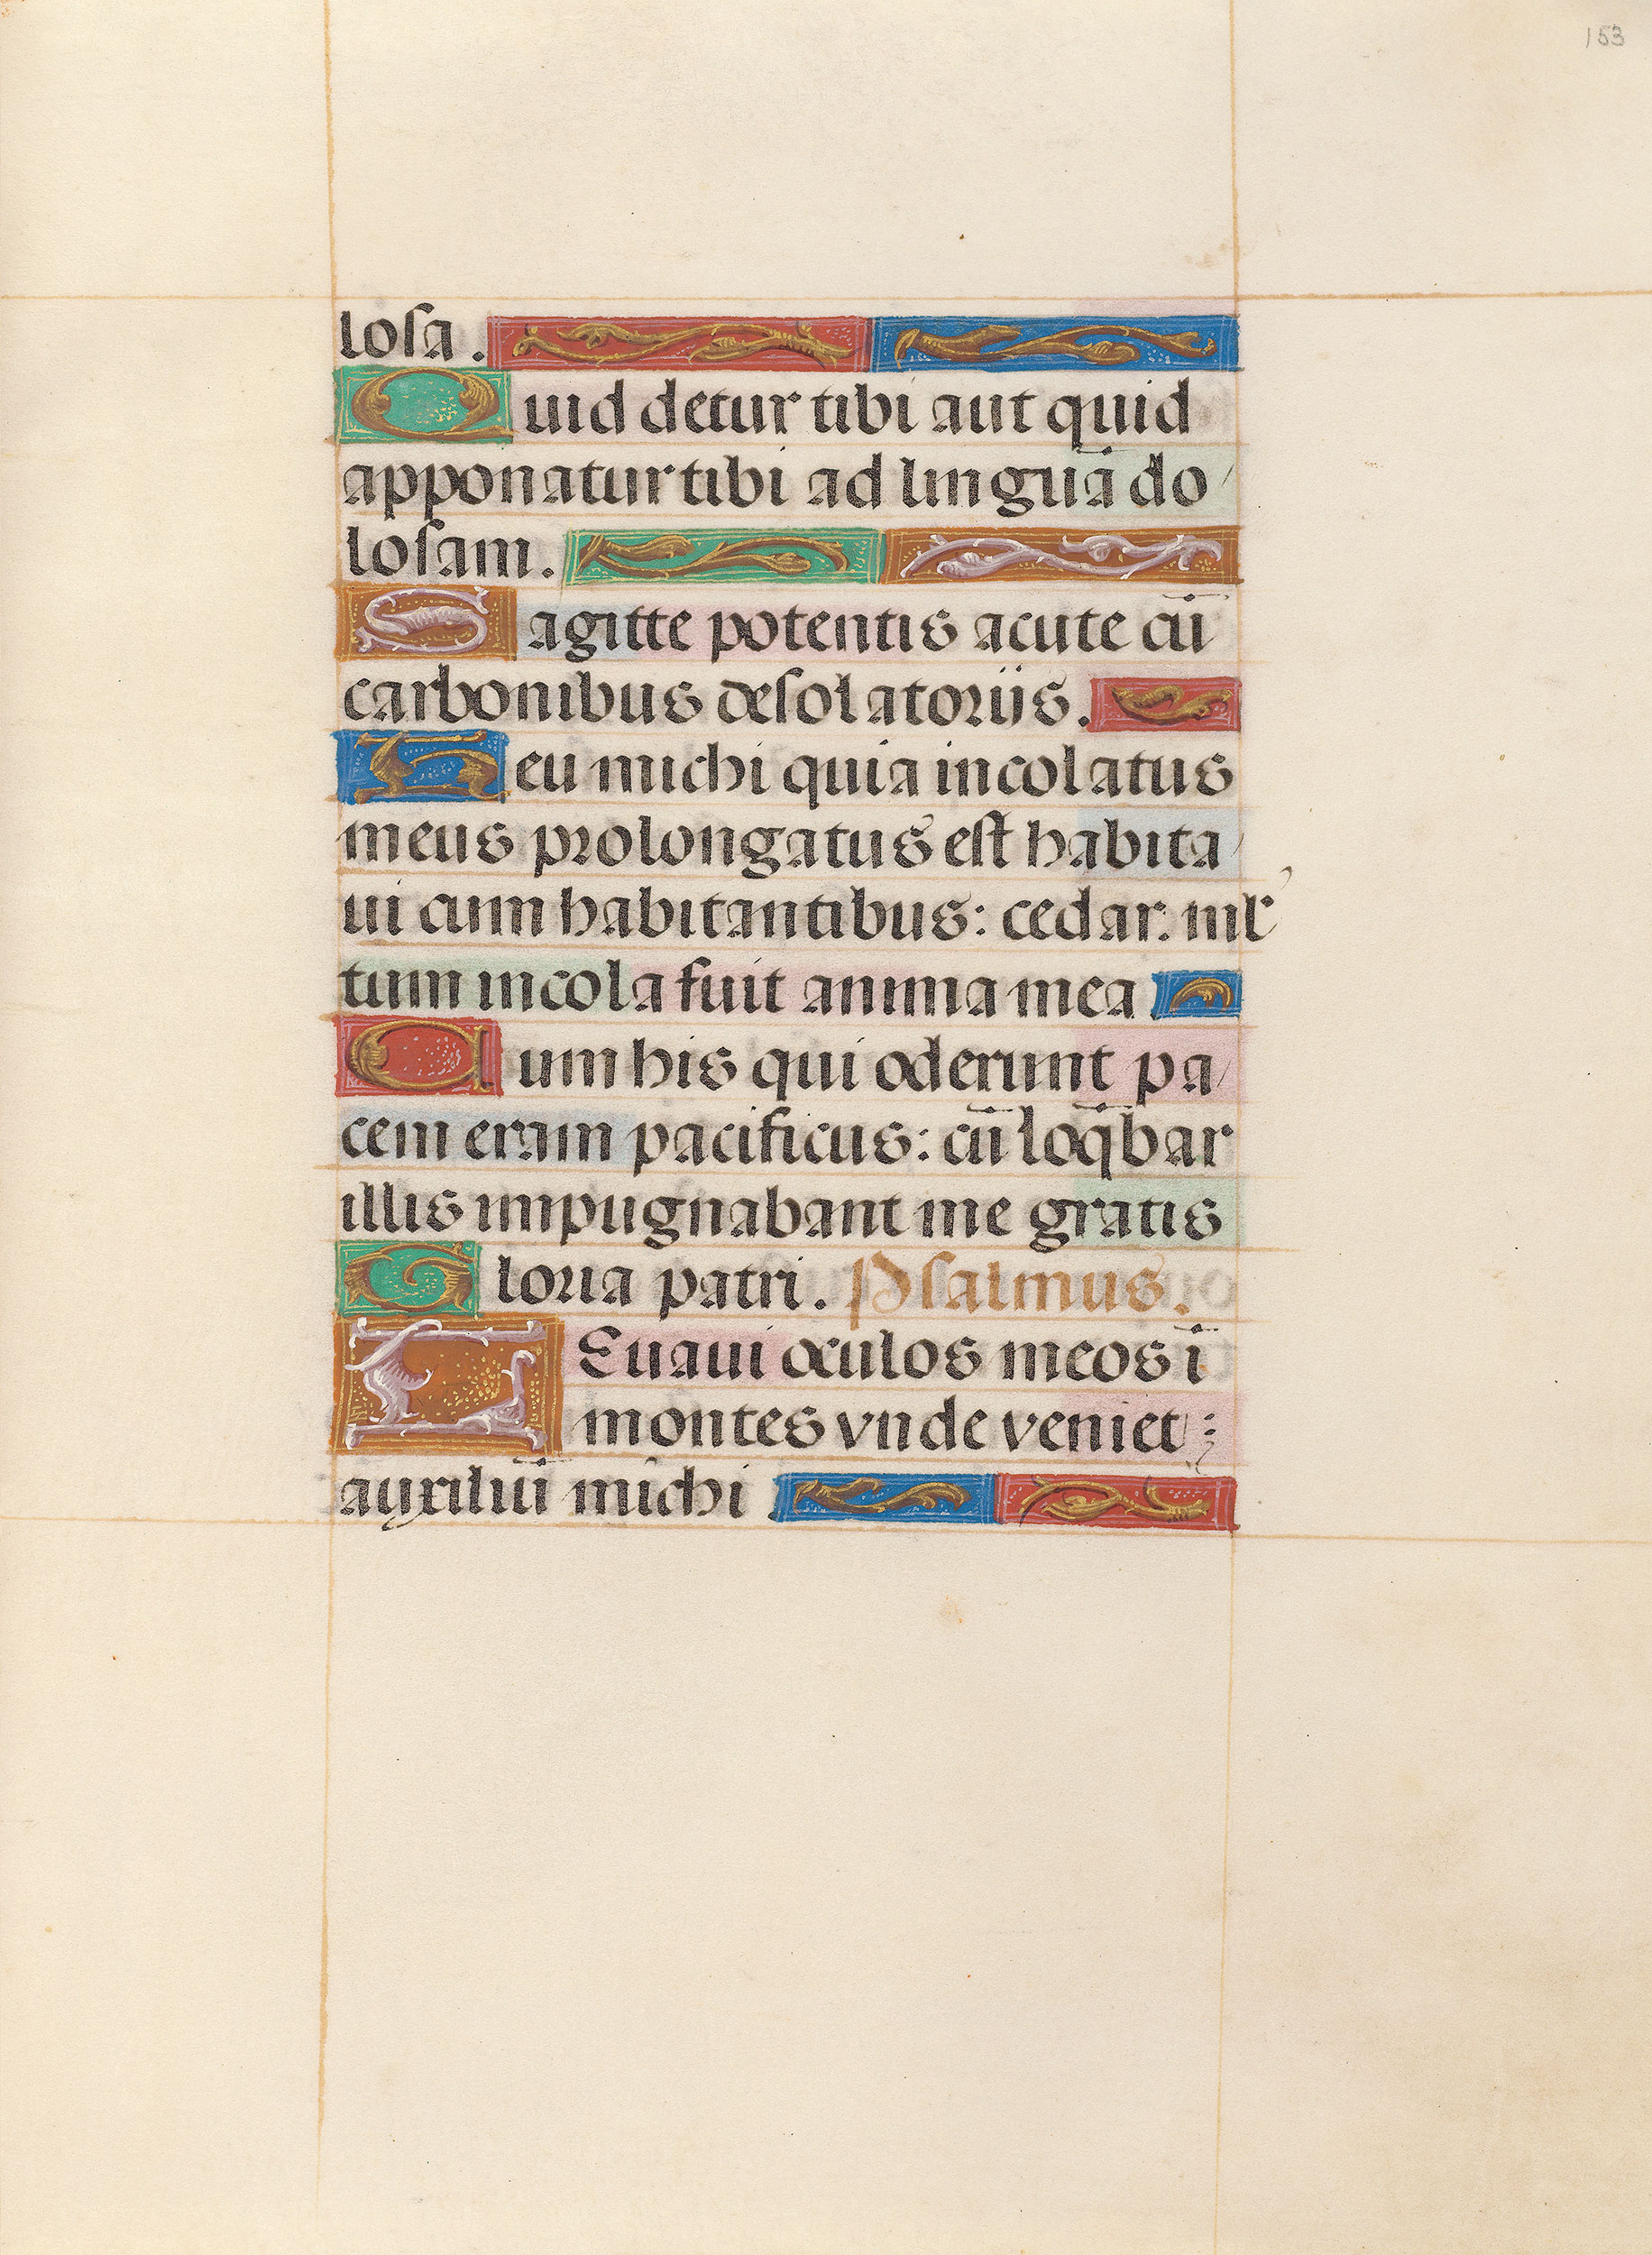 153
losa.
Quid detur tibi aut quid
apponatur tibi ad linguā do
losam.
Sagitte potentis acute cū
carbonibus desolatoriis.
Heu michi quia incolatus
meus prolongatus est habita
ui cum habitantibus: cedar: ml̓
tum incola fuit anima mea
Cum his qui oderunt pa
cem eram pacificus: cū loq̄bar
illis impugnabant me gratis
Gloria patri. Psalmus.
LEuaui oculos meos ī
montes vnde veniet:
auxiliū michi